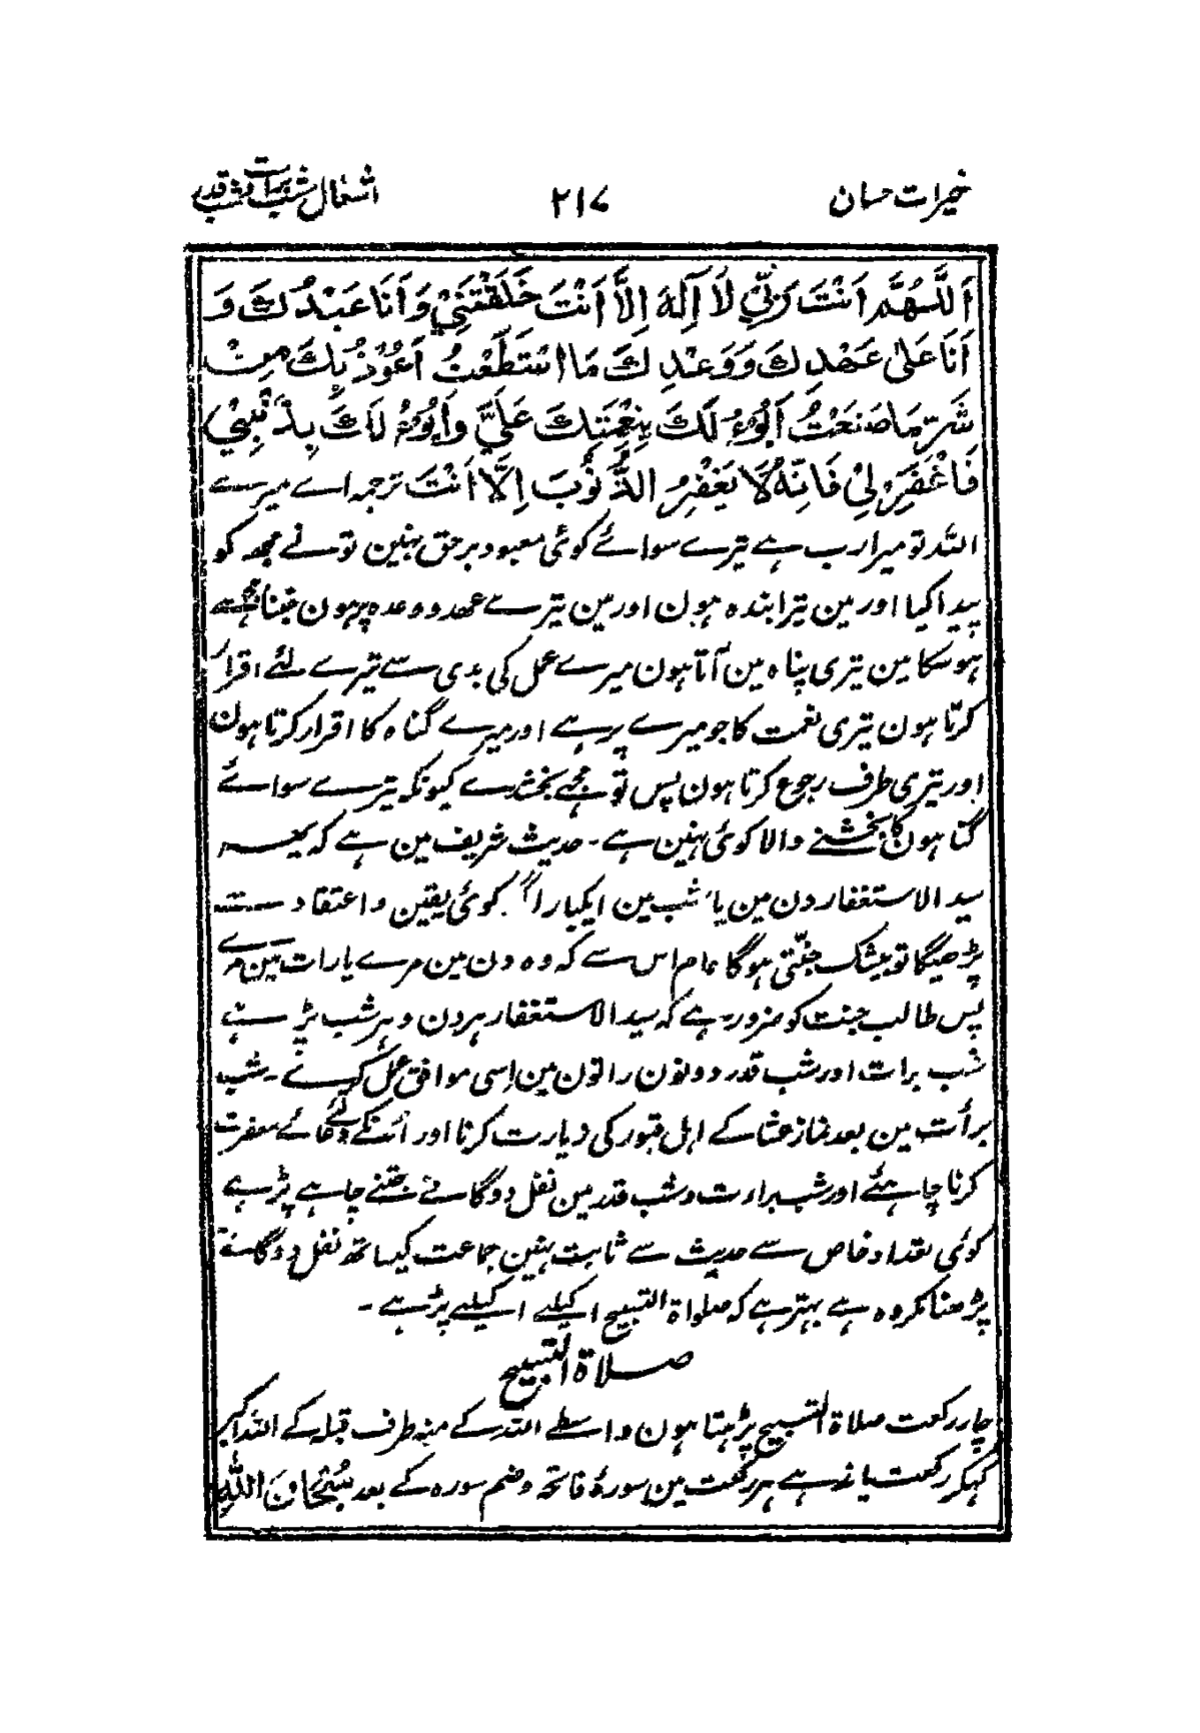 خیرات حسان ۲۱۷ اشغال شب برات و شب قدر
اَللّٰهُمَّ اَنْتَ رَبِّیْ لَا اِلٰهَ اِلَّا اَنْتَ خَلَقْتَنِیْ وَ اَنَا عَبْدُكَ وَ
اَنَا عَلٰی عَهْدِكَ وَ وَعْدِكَ مَا اسْتَطَعْتُ اَعُوْذُ بِكَ مِنْ
شَرِّ مَا صَنَعْتُ اَبُوْءُ لَكَ بِنِعْمَتِكَ عَلَیَّ وَ اَبُوْءُ لَكَ بِذَنْبِیْ
فَاغْفِرْ لِیْ فَاِنَّهٗ لَا یَغْفِرُ الذُّنُوْبَ اِلَّا اَنْتَ ترجمہ اے میرے
اللہ تو میرا رب ہے تیرے سوائے کوئی معبود برحق نہین تو نے مجھ کو
پیدا کیا اور مین تیرا بندہ ہون اور مین تیرے عہد و وعدہ پر ہون جتنا مجھسے
ہو سکا مین تیری پناہ مین آتا ہون میرے عمل کی بدی سے تیرے لئے اقرار
کرتا ہون تیری نعمت کا جو میرے پر ہے اور میرے گناہ کا اقرار کرتا ہون
اور تیری طرف رجوع کرتا ہون پس تو مجھے بخشدے کیونکہ تیرے سوائے
گناہون کا بخشنے والا کوئی نہین ہے ۔ حدیث شریف مین ہے کہ یہ
سید الاستغفار دن مین یا شب مین ایکبار اگر کوئی یقین و اعتقاد ست
پڑھیگا تو بیشک جنتی ہوگا عام اس سے کہ وہ دن مین مرے یا رات مین مرے
پس طالب جنت کو ضرور ہے کہ سید الاستغفار ہر دن و ہر شب پڑہے
شب برات اور شب قدر دونون راتون مین اسی موافق عمل کرنے ۔ شب
برأت مین بعد نماز عشا کے اہل قبور کی زیارت کرنا اور اُنکے لئے دعائے مغفرت
کرنا چاہئے اور شب براءت و شب قدر مین نفل دوگانے جتنے چاہے پڑہے
کوئی تعداد خاص سے حدیث سے ثابت نہین جماعت کیساتھ نفل دوگانہ
پڑھنا مکروہ ہے بہتر ہے کہ صلواة التسبیح اکیلے اکیلے پڑہے ۔
صلاة التسبیح
چار رکعت صلاة التسبیح پڑہتا ہون واسطے اللہ کے منہ طرف قبلہ کے اللہ اکبر
کہکر رکعت باندہے ہر رکعت مین سورۂ فاتحہ و ضم سورہ کے بعد سُبْحَانَ اللّٰهِ